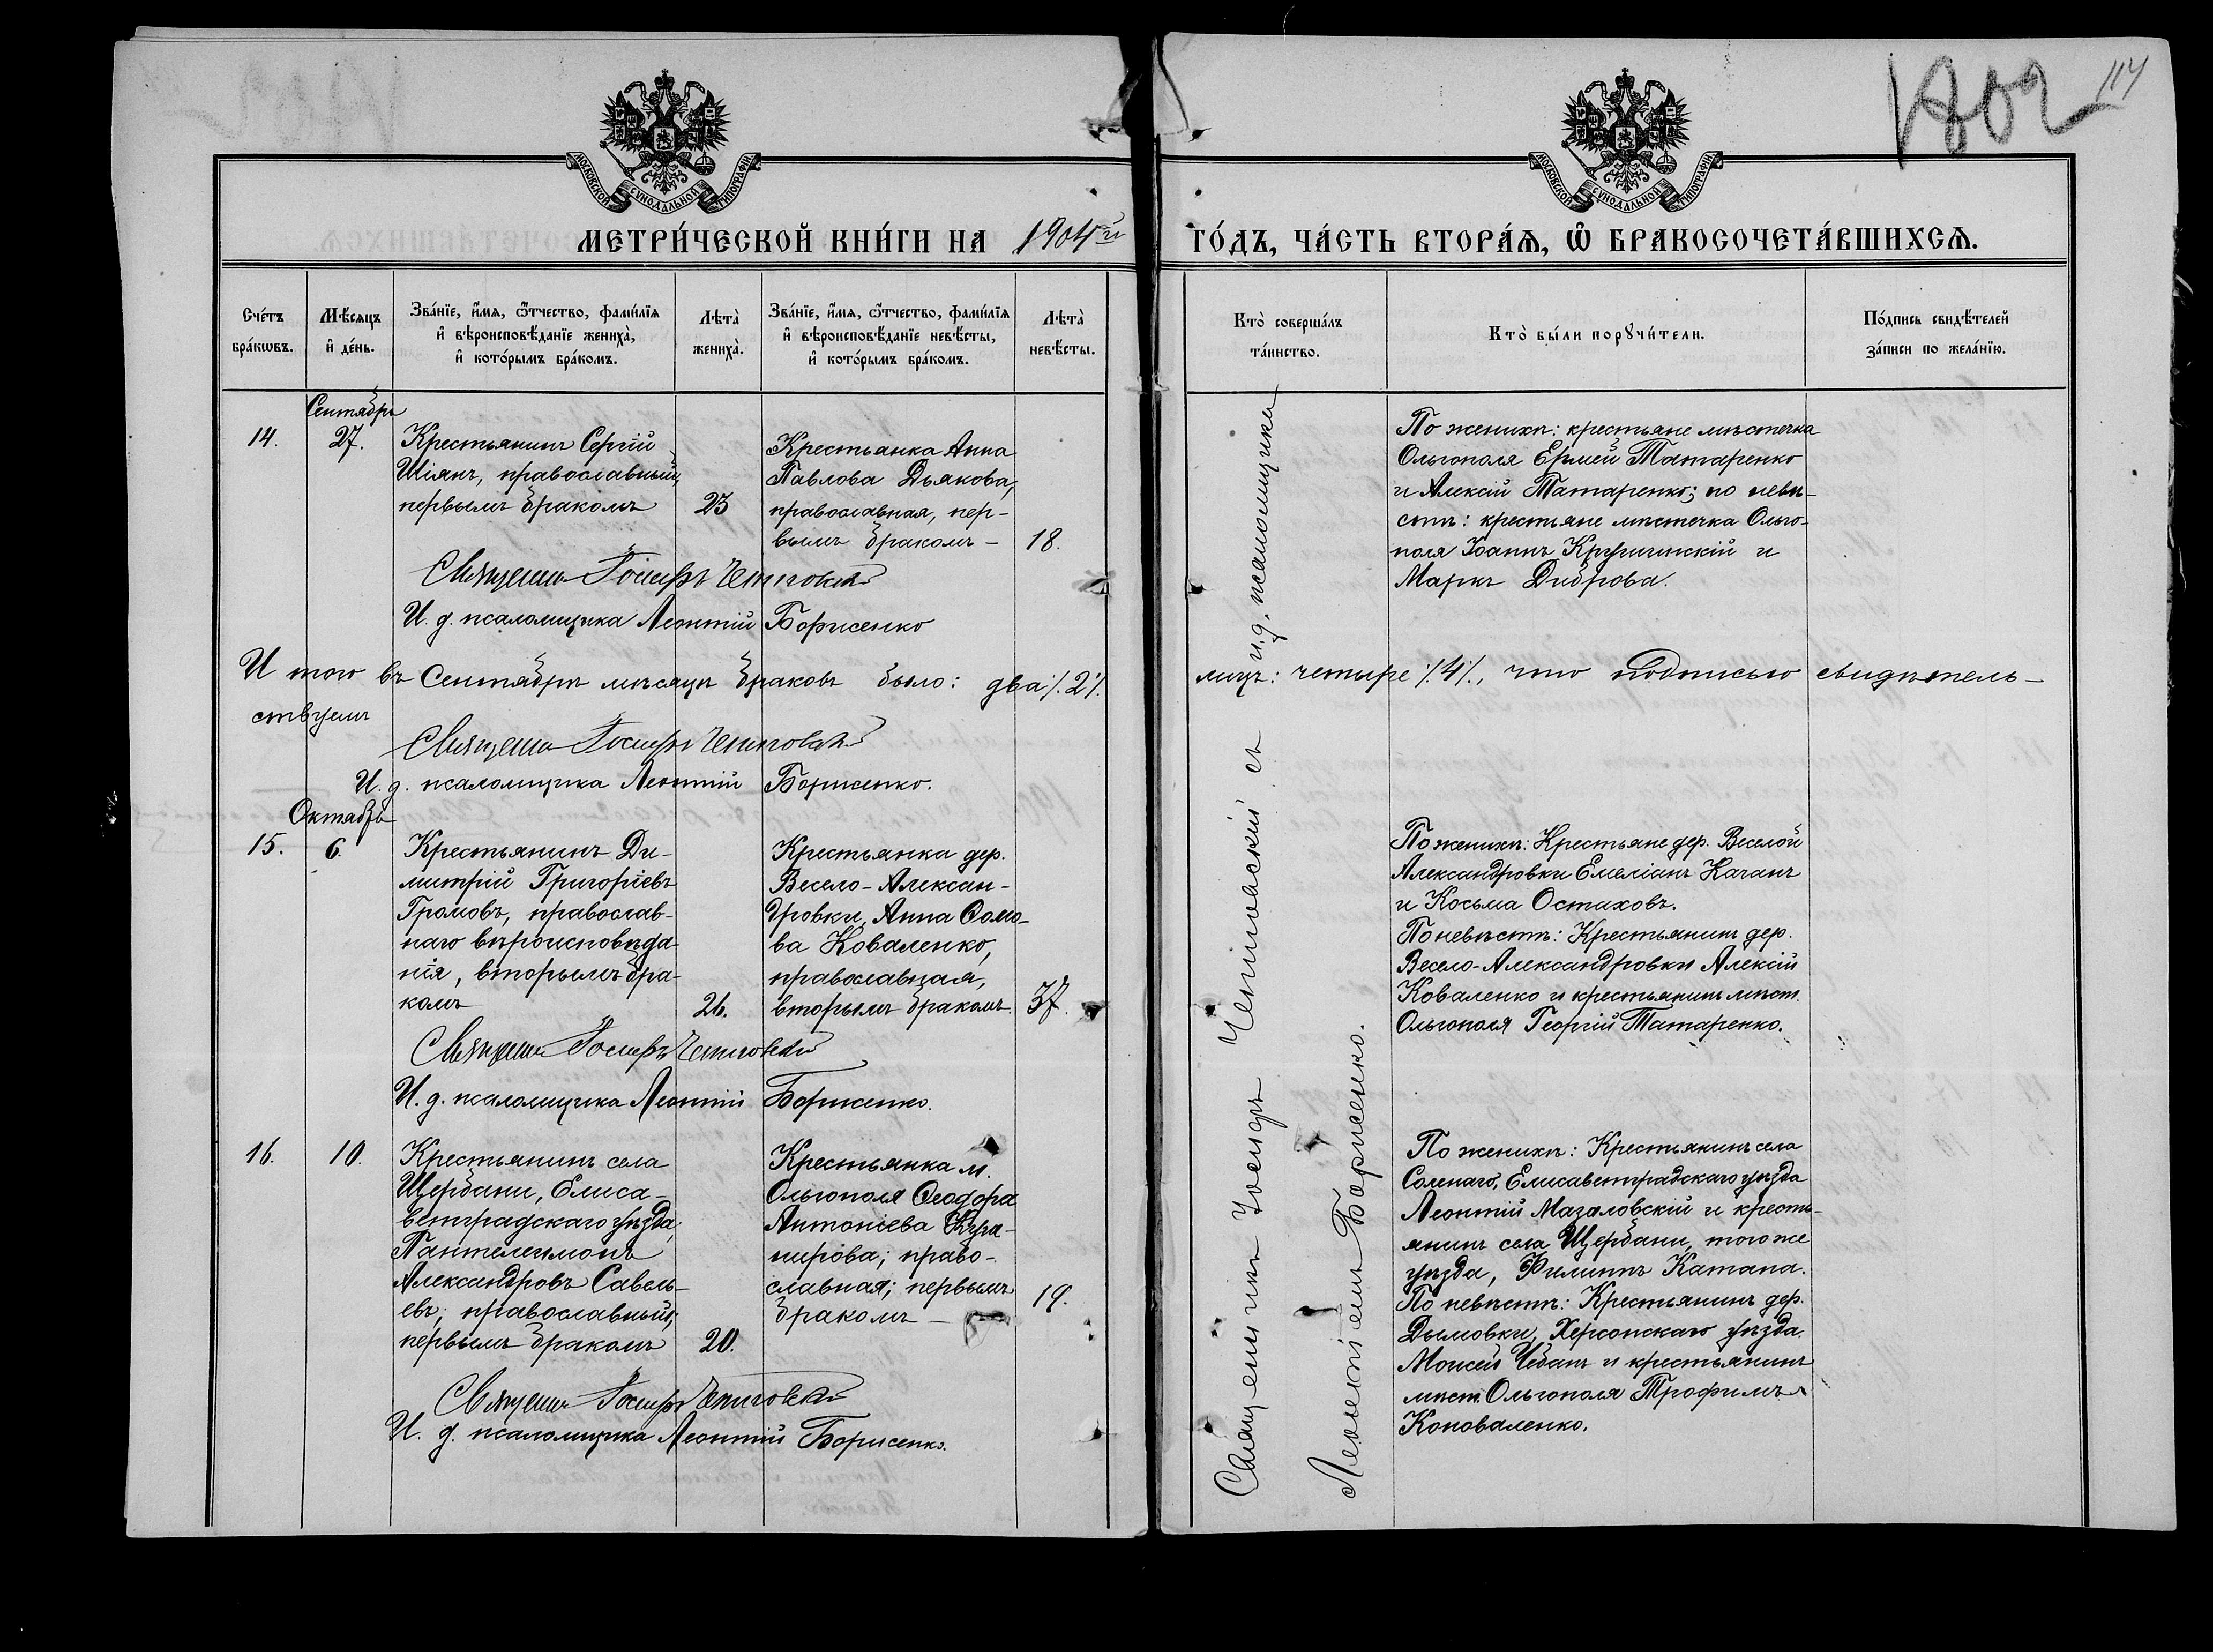 1802 114
МОСКОВСКОЙ СУНОДАЛЬНОЙ ТИПОГРАФІИ
МОСКОВСКОЙ СУНОДАЛЬНОЙ ТИПОГРАФІИ
МЕТРИ́ЧЕСКОЙ КНИ́ГИ НА 1904й ГО́ДЪ, ЧА́СТЬ ВТОРА́Ѧ, Ѡ҆ БРАКОСОЧЕТА́ВШИХСѦ.
Сче́тъ бра́кѡвъ.
Мѣ́сѧцъ и҆ де́нь.
Зва́нїе, и҆́мѧ, ѻ҆́тчество, фами́лїѧ и҆ вѣроисповѣ́данїе жениха̀, и҆ кото́рымъ бра́комъ.
Лѣта̀ жениха̀.
Зва́нїе, и҆́мѧ, ѻ҆́тчество, фами́лїѧ и҆ вѣроисповѣ́данїе невѣ́сты, и҆ кото́рымъ бра́комъ.
Лѣта̀ невѣ́сты.
Кто̀ соверша́лъ та́инство.
Кто̀ бы́ли порꙋчи́тели.
По́дпись свидѣ́телей за́писи по жела́нїю.
Сентябрь
14. 27.
Крестьянинъ Сергій
Шіянъ, православный,
первымъ бракомъ 23
Крестьянка Анна
Павлова Дьякова,
православная, пер-
вымъ бракомъ - 18.
По женихѣ: крестьяне мѣстечка
Ольгополя Ермей Татаренко
и Алексій Татаренко; по невѣ-
стѣ: крестьяне мѣстечка Ольго-
поля Іоаннъ и
Маркъ Диброва.
Священникъ Іосифъ
И. д. псаломщика Леонтій Борисенко
И того въ Сентябрѣ мѣсяцѣ браковъ было: два /.2/. лицъ: четыре /.4/., что подписью свидѣтель-
ствуемъ
Священникъ Іосифъ
И. д. псаломщика Леонтій Борисенко.
Октябрь
15. 6.
Крестьянинъ Ди-
митрій Григоріевъ
Громовъ, православ-
наго вѣроисповѣда-
нія, вторымъ бра-
комъ 26.
Крестьянка дер.
Весело-Алексан-
дровки, Анна Ѳомо-
ва Коваленко,
православная,
вторымъ бракомъ. 37.
По женихѣ: Крестьяне дер. Веселой
Александровки Емеліанъ Качанъ
и Косьма Остаховъ.
По невѣстѣ: Крестьянинъ дер.
Весело-Александровки Алексій
Коваленко и крестьянинъ мѣст.
Ольгополя Георгій Татаренко.
Священникъ Іосифъ
И. д. псаломщика Леонтій Борисенко.
16. 10.
Крестьянинъ села
Щербани, Елиса-
ветградскаго уѣзда,
Пантелеимонъ
Александровъ Савель-
евъ; православный;
первымъ бракомъ 20.
Крестьянка м.
Ольгополя Ѳеодора
Антоніева
право-
славная; первымъ
бракомъ - 19.
По женихѣ: Крестьянинъ села
Соленаго, Елисаветградскаго уѣзда
Леонтій Мазаловскій и кресть-
янинъ села Щербани, того же
уѣзда, Филиппъ Катана.
По невѣстѣ: Крестьянинъ дер.
Дымовки, Херсонскаго уѣзда
Моисей Чебанъ и крестьянинъ
мѣст. Ольгополя Трофимъ
Коноваленко.
Священникъ Іосифъ
И. д. псаломщика Леонтій Борисенко.
Священникъ Іосифъ съ и.д. псаломщика
Леонтіемъ Борисенко.